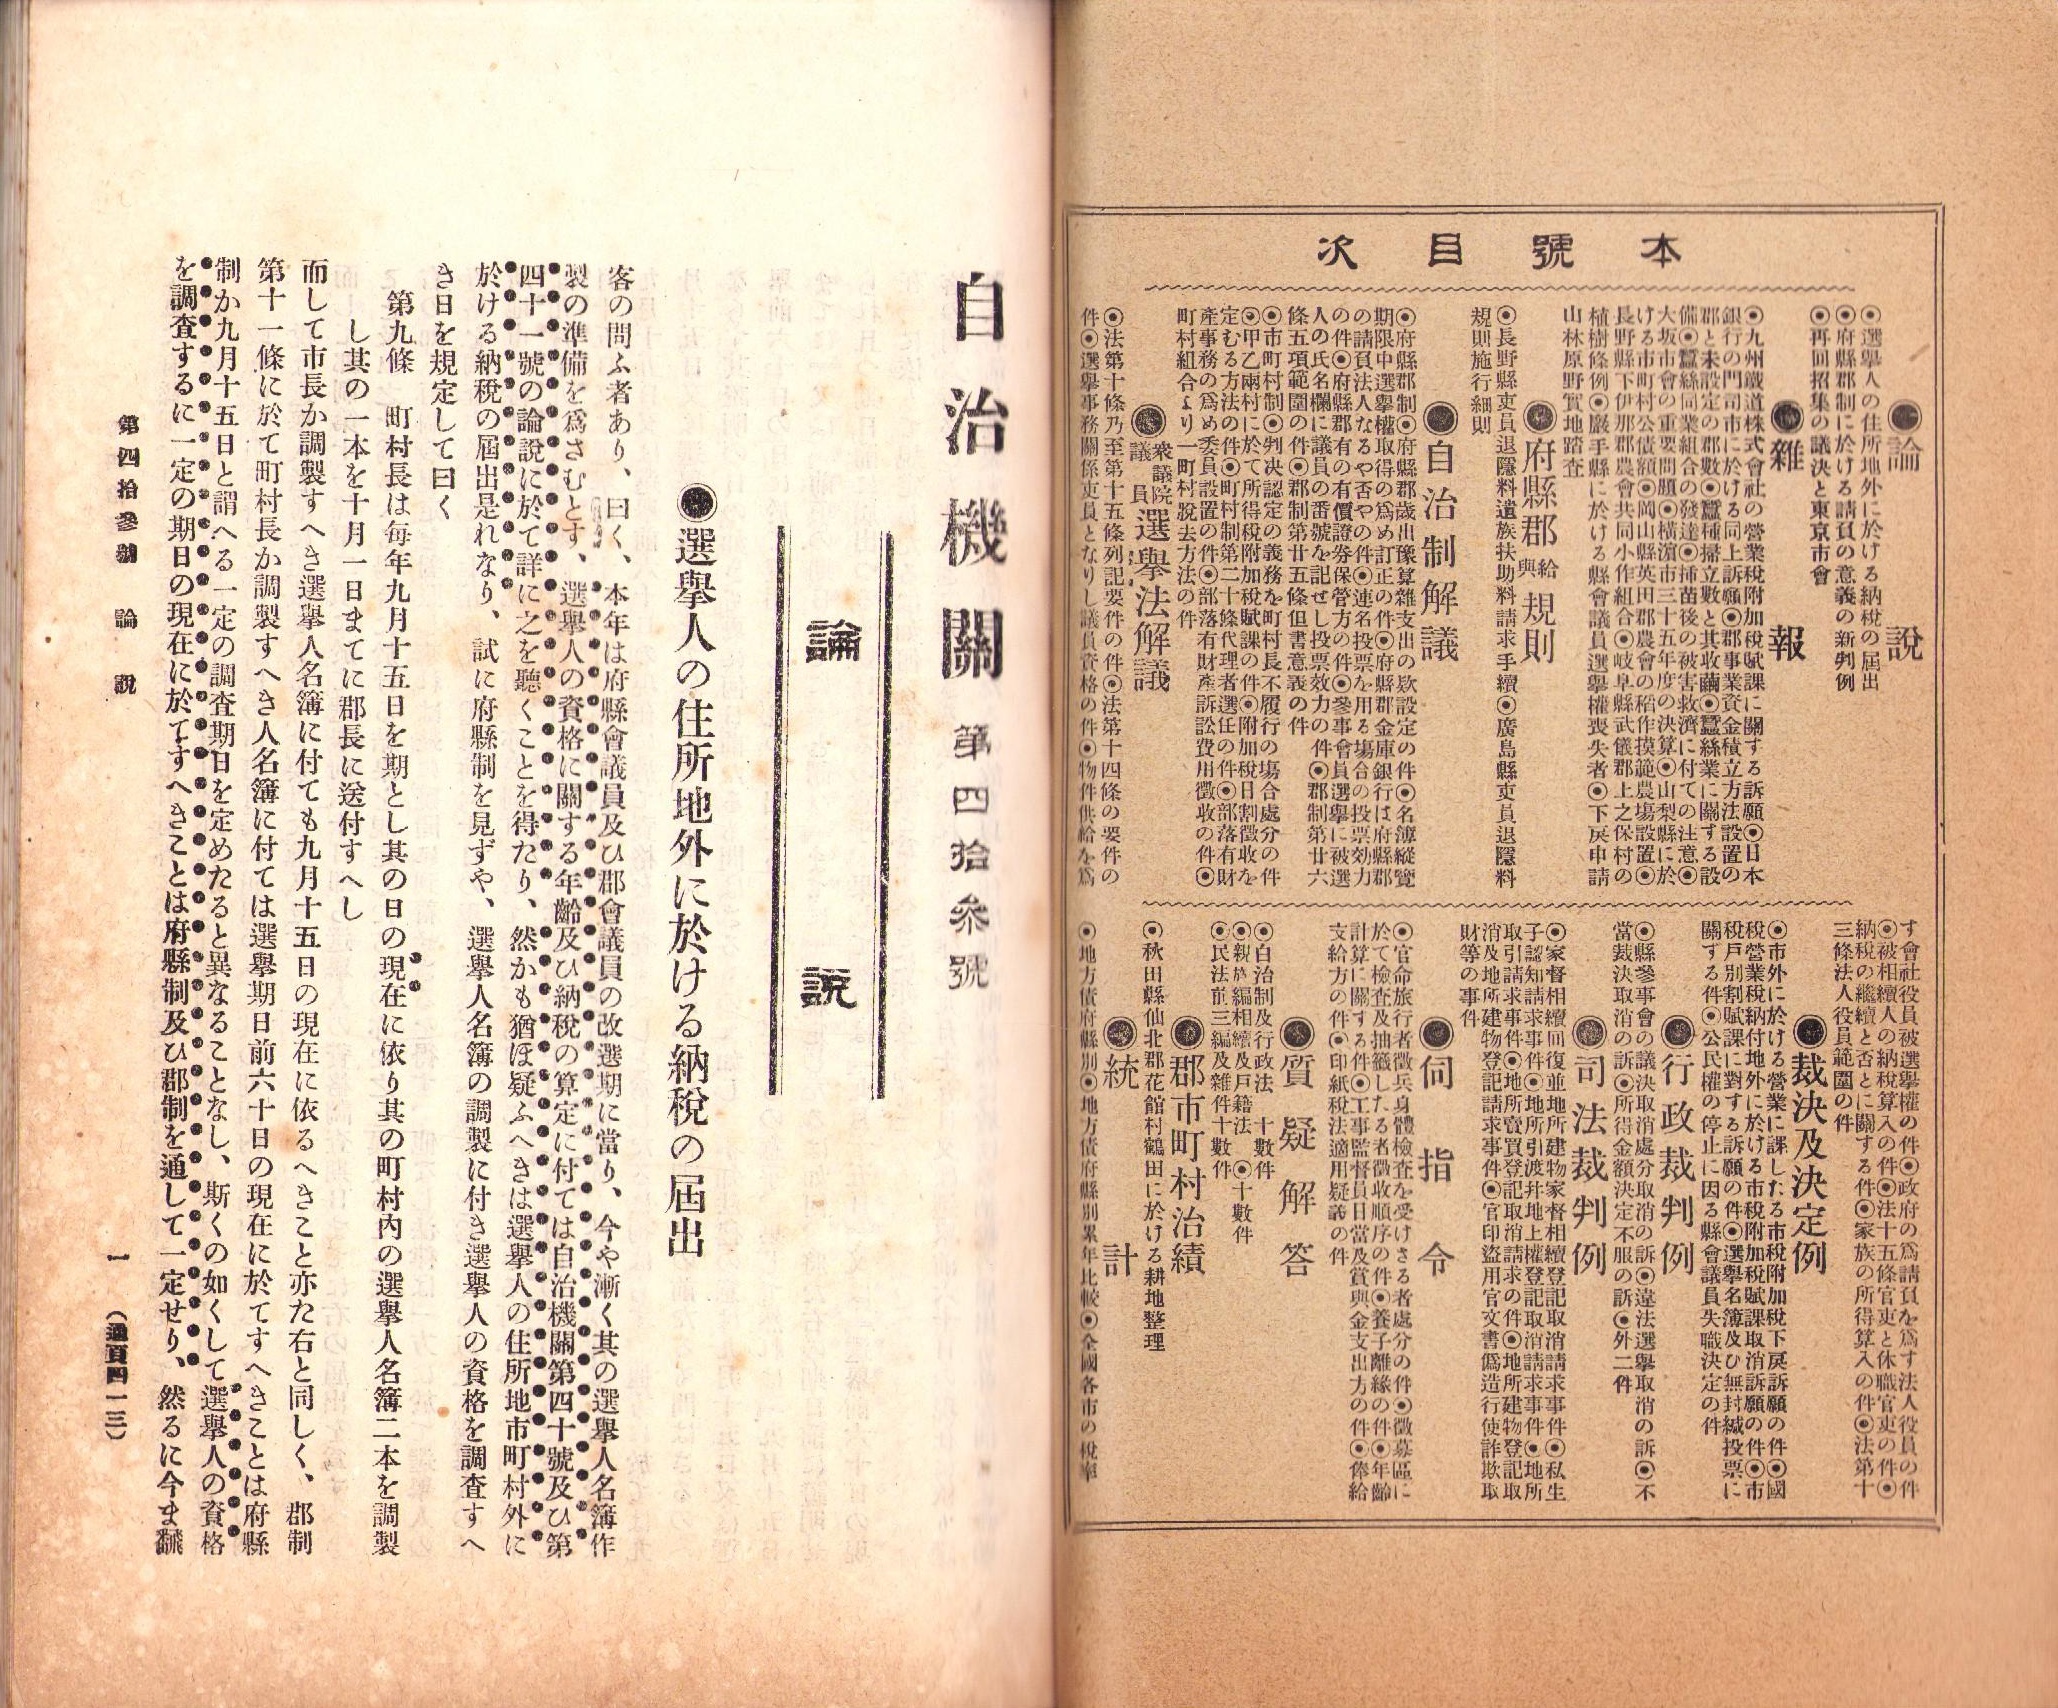 本號目次
●論說
◉選擧人の住所地外に於ける納稅の屆出
◉府縣郡制に於ける請負の意義の新判例
◉再回招集の議決と東京市會
●雜報
◉九州鐵道株式會社の營業稅附加稅賦課に關する訴願◉日本
銀行の門司市に於ける同上訴願◉郡事業資金積立方法設置の
郡と未設定の郡數◉蠶種掃立數と其收繭◉蠶絲業に關する設
備◉蠶絲同業組合の發達◉挿苗後の被害救濟に付ての注意◉
大坂市會の重要問題◉橫濱市三十五年度の決算◉山梨縣に於
ける市町村公債額◉岡山縣英田郡農會の稻作摸範農塲設置◉
長野縣下伊那郡農會共同小作組合◉岐阜縣武儀郡上之保村の
植樹條例◉巖手縣に於ける縣會議員選擧權喪失者◉下戾申請
山林原野實地踏査
●府縣郡給與規則
◉長野縣吏員退隱料遺族扶助料請求手續◉廣島縣吏員退隱料
規則施行細則
●自治制解議
◉府縣郡制◉府縣郡歲出豫算雜支出の欵設定の件◉名簿縱覽
期限中選擧權取得の爲め訂正の件◉府縣郡金庫銀行は府縣郡
の請負法人なるや否やの件◉連名投票を用る塲合の投票効力
の件◉府縣郡有の有價證券保管方の件◉參事會員選擧に被選
人の氏名欄に議員の番號を記せし投票効力の件◉郡制第廿六
條五項範圍の件◉郡制第廿五條但書意義の件
◉市町村制◉判決認定の義務を町村長不履行の塲合處分の件
◉甲乙兩村に於て所得稅附加稅賦課の件◉附加稅日割徵收を
定むる方法の件◉町村制第二十條代理者選任の件◉部落有財
產事務の爲め委員設置の件◉部落有財產訴訟費用徵收の件◉
町村組合より一町村脫去方法の件
●衆議院議員選擧法解議
◉法第十條乃至第十五條列記要件の件◉法第十四條の要件の
件◉選擧事務關係吏員となりし議員資格の件◉物件供給を爲
す會社役員被選擧權の件◉政府の爲請負を爲す法人役員の件
◉被相續人の納稅算入の件◉法十五條官吏と休職官吏の件◉
納稅の繼續と否とに關する件◉家族の所得算入の件◉法第十
三條法人役員範圍の件
●裁決及決定例
◉市外に於ける營業に課したる市稅附加稅下戾訴願の件◉國
稅營業稅納付地外に於ける市稅附加稅賦課取消訴願の件◉市
稅戶別割賦課に對する訴願の件◉選擧名簿及ひ無封緘投票に
關する件◉公民權の停止に因る縣會議員失職決定の件
●行政裁判例
◉縣參事會の議決取消處分取消の訴◉違法選擧取消の訴◉不
當裁決取消の訴◉所得金額決定不服の訴◉外二件
●司法裁判例
◉家督相續回復並地所建物家督相續登記取消請求事件◉私生
子認知請求事件◉地所引渡幷地上權登記取消請求事件◉地所
取引請求事件◉地所賣買登記取消請求の件◉地所建物登記取
消及地所建物登記請求事件◉官印盜用官文書僞造行使詐欺取
財等の事件
●伺指令
◉官命旅行者徵兵身體檢査を受けさる者處分の件◉徵募區に
於て檢査及抽籤したる者徵收順序の件◉養子離緣の件◉年齡
計算に關する件◉工事監督員日當及賞與金支出方の件◉俸給
支給方の件◉印紙稅法適用疑議の件
●質疑解答
◉自治制及行政法　十數件
◉親族編相續及戶籍法　◉十數件
◉民法前三編及雜件十數件
●郡市町村治績
◉秋田縣仙北郡花館村鶴田に於ける耕地整理
●統計
◉地方債府縣別◉地方債府縣別累年比較◉全國各市の稅率
自治機關　第四拾參號
論說
●選擧人の住所地外に於ける納稅の屆出
客の問ふ者あり、曰く、本年は府縣會議員及ひ郡會議員の改選期に當り、今や漸く其の選擧人名簿作
製の準備を爲さむとす、選擧人の資格に關する年齡及ひ納稅の算定に付ては自治機關第四十號及ひ第
四十一號の論說に於て詳に之を聽くことを得たり、然かも猶ほ疑ふへきは選擧人の住所地市町村外に
於ける納稅の屆出是れなり、試に府縣制を見ずや、選擧人名簿の調製に付き選擧人の資格を調査すへ
き日を規定して曰く
第九條　町村長は每年九月十五日を期とし其の日の現在に依り其の町村內の選擧人名簿二本を調製
し其の一本を十月一日まてに郡長に送付すへし
而して市長か調製すへき選擧人名簿に付ても九月十五日の現在に依るへきこと亦た右と同しく、郡制
第十一條に於て町村長か調製すへき人名簿に付ては選擧期日前六十日の現在に於てすへきことは府縣
制か九月十五日と謂へる一定の調査期日を定めたると異なることなし、斯くの如くして選擧人の資格
を調査するに一定の期日の現在に於てすへきことは府縣制及ひ郡制を通して一定せり、然るに今ま飜
第四拾參號　論說
一　（通頁四一三）